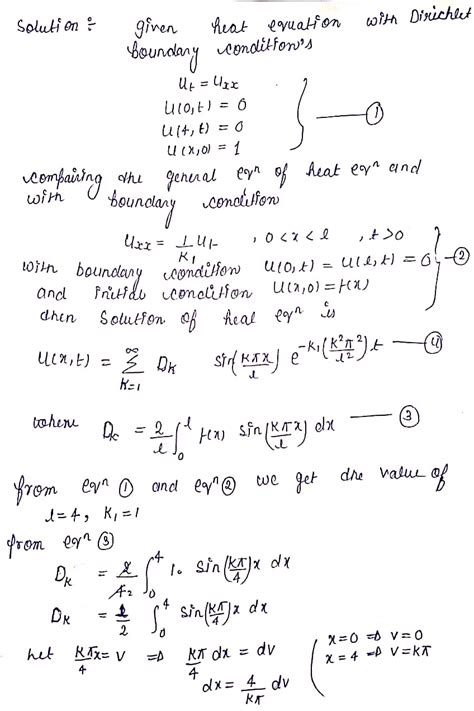 Solution:- given heat equation with Dirichlet
boundary condition's
Ut = Uxx
U(0,t) = 0
U(4,t) = 0
U(x,0) = 1
} — ①
compairing the general eqⁿ of heat eqⁿ and
with boundary condition
Uxx = 1/K₁ Ut , 0<x<l , t>0
with boundary condition U(0,t) = U(l,t) = 0
and initial condition U(x,0) = f(x)
} — ②
then solution of heat eqⁿ is
U(x,t) = ∞ Σ K=1 Dk sin(Kπx/l) e^-K₁(k²π²/l²)t — ④
where Dk = 2/l ∫₀^l f(x) sin(Kπx/l) dx — ③
from eqⁿ ① and eqⁿ ② we get the value of
l=4, K₁=1
from eqⁿ ③
Dk = 2/42 ∫₀⁴ 1. sin(Kπ/4)x dx
Dk = 1/2 ∫₀⁴ sin(Kπ/4)x dx
let Kπx/4 = v ⇒ Kπ/4 dx = dv
dx = 4/Kπ dv
( x=0 ⇒ v=0
x=4 ⇒ v=Kπ